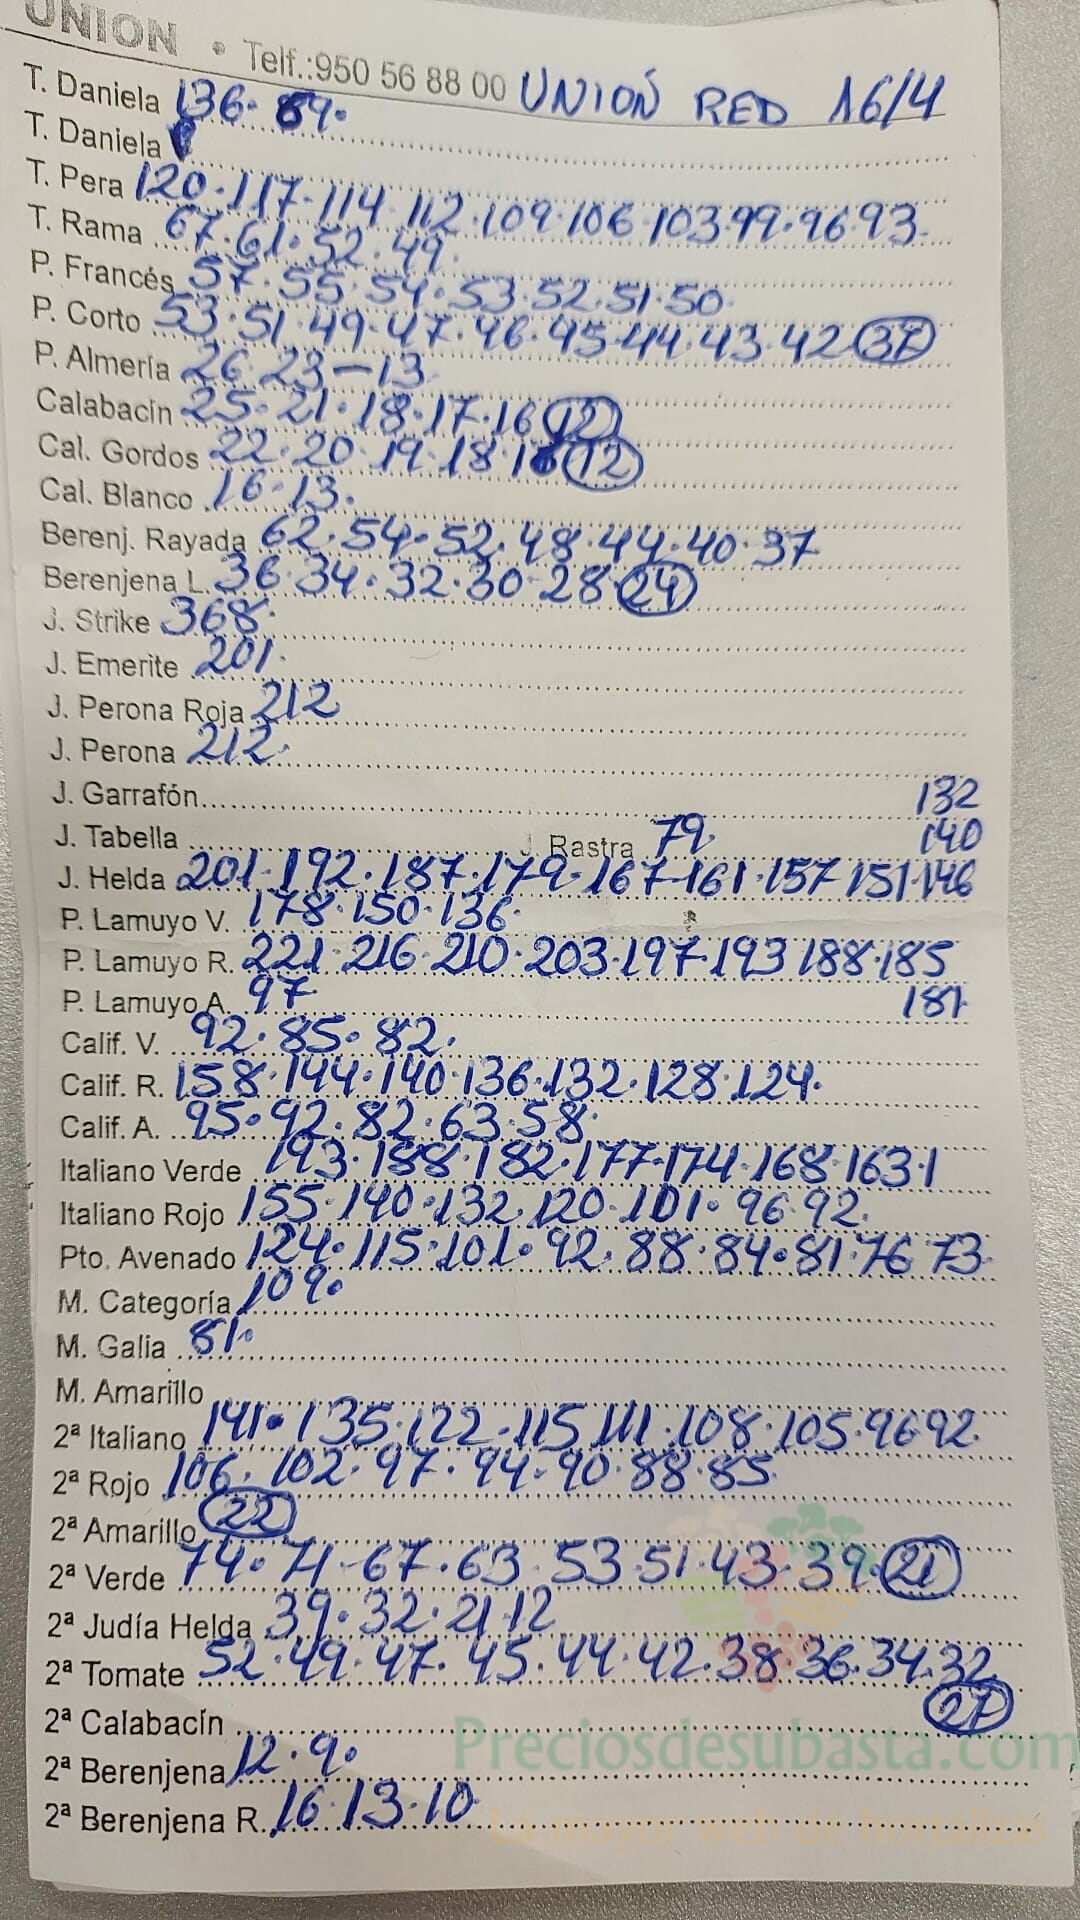 UNION • Telf.:950 56 88 00 UNIÓN RED 16/4
T. Daniela 136. 89.
T. Daniela
T. Pera 120.117.114.112.109.106.103.99.96.93.
T. Rama 67.61.52.49.
P. Francés 57.55.54.53.52.51.50.
P. Corto 53.51.49.47.46.45.44.43.42 37
P. Almería 26.23-13.
Calabacín 25.21.18.17.16 12
Cal. Gordos 22.20.19.18.16 12
Cal. Blanco 16.13.
Berenj. Rayada 62.54.52.48.44.40.37
Berenjena L. 36.34.32.30.28 24
J. Strike 368.
J. Emerite 201.
J. Perona Roja 212
J. Perona 212.
J. Garrafón 132
J. Tabella J. Rastra 79. 140
J. Helda 201.192.187.179.167.161.157 151.146
P. Lamuyo V. 178.150.136.
P. Lamuyo R. 221.216.210.203.197.193 188.185
P. Lamuyo A. 97 181.
Calif. V. 92.85.82.
Calif. R. 158.144.140.136.132.128.124.
Calif. A. 95.92.82.63.58.
Italiano Verde 193.188.182.177.174.168.163.1
Italiano Rojo 155.140.132.120.101.96.92.
Pto. Avenado 124.115.101.92.88.84.81.76 73.
M. Categoría 109.
M. Galia 81.
M. Amarillo
2ª Italiano 141.135.122.115.111.108.105.96.92.
2ª Rojo 106.102.97.94.90.88.85.
2ª Amarillo 22
2ª Verde 74.71-67.63.53.51.43.39. 21
2ª Judía Helda 39.32.21.12
2ª Tomate 52.49.47.45.44.42.38.36.34.32.
27
2ª Calabacín
Preciosdesubasta.com
2ª Berenjena 12.9.
2ª Berenjena R. 16.13.10.
La mayor web de hortalizas